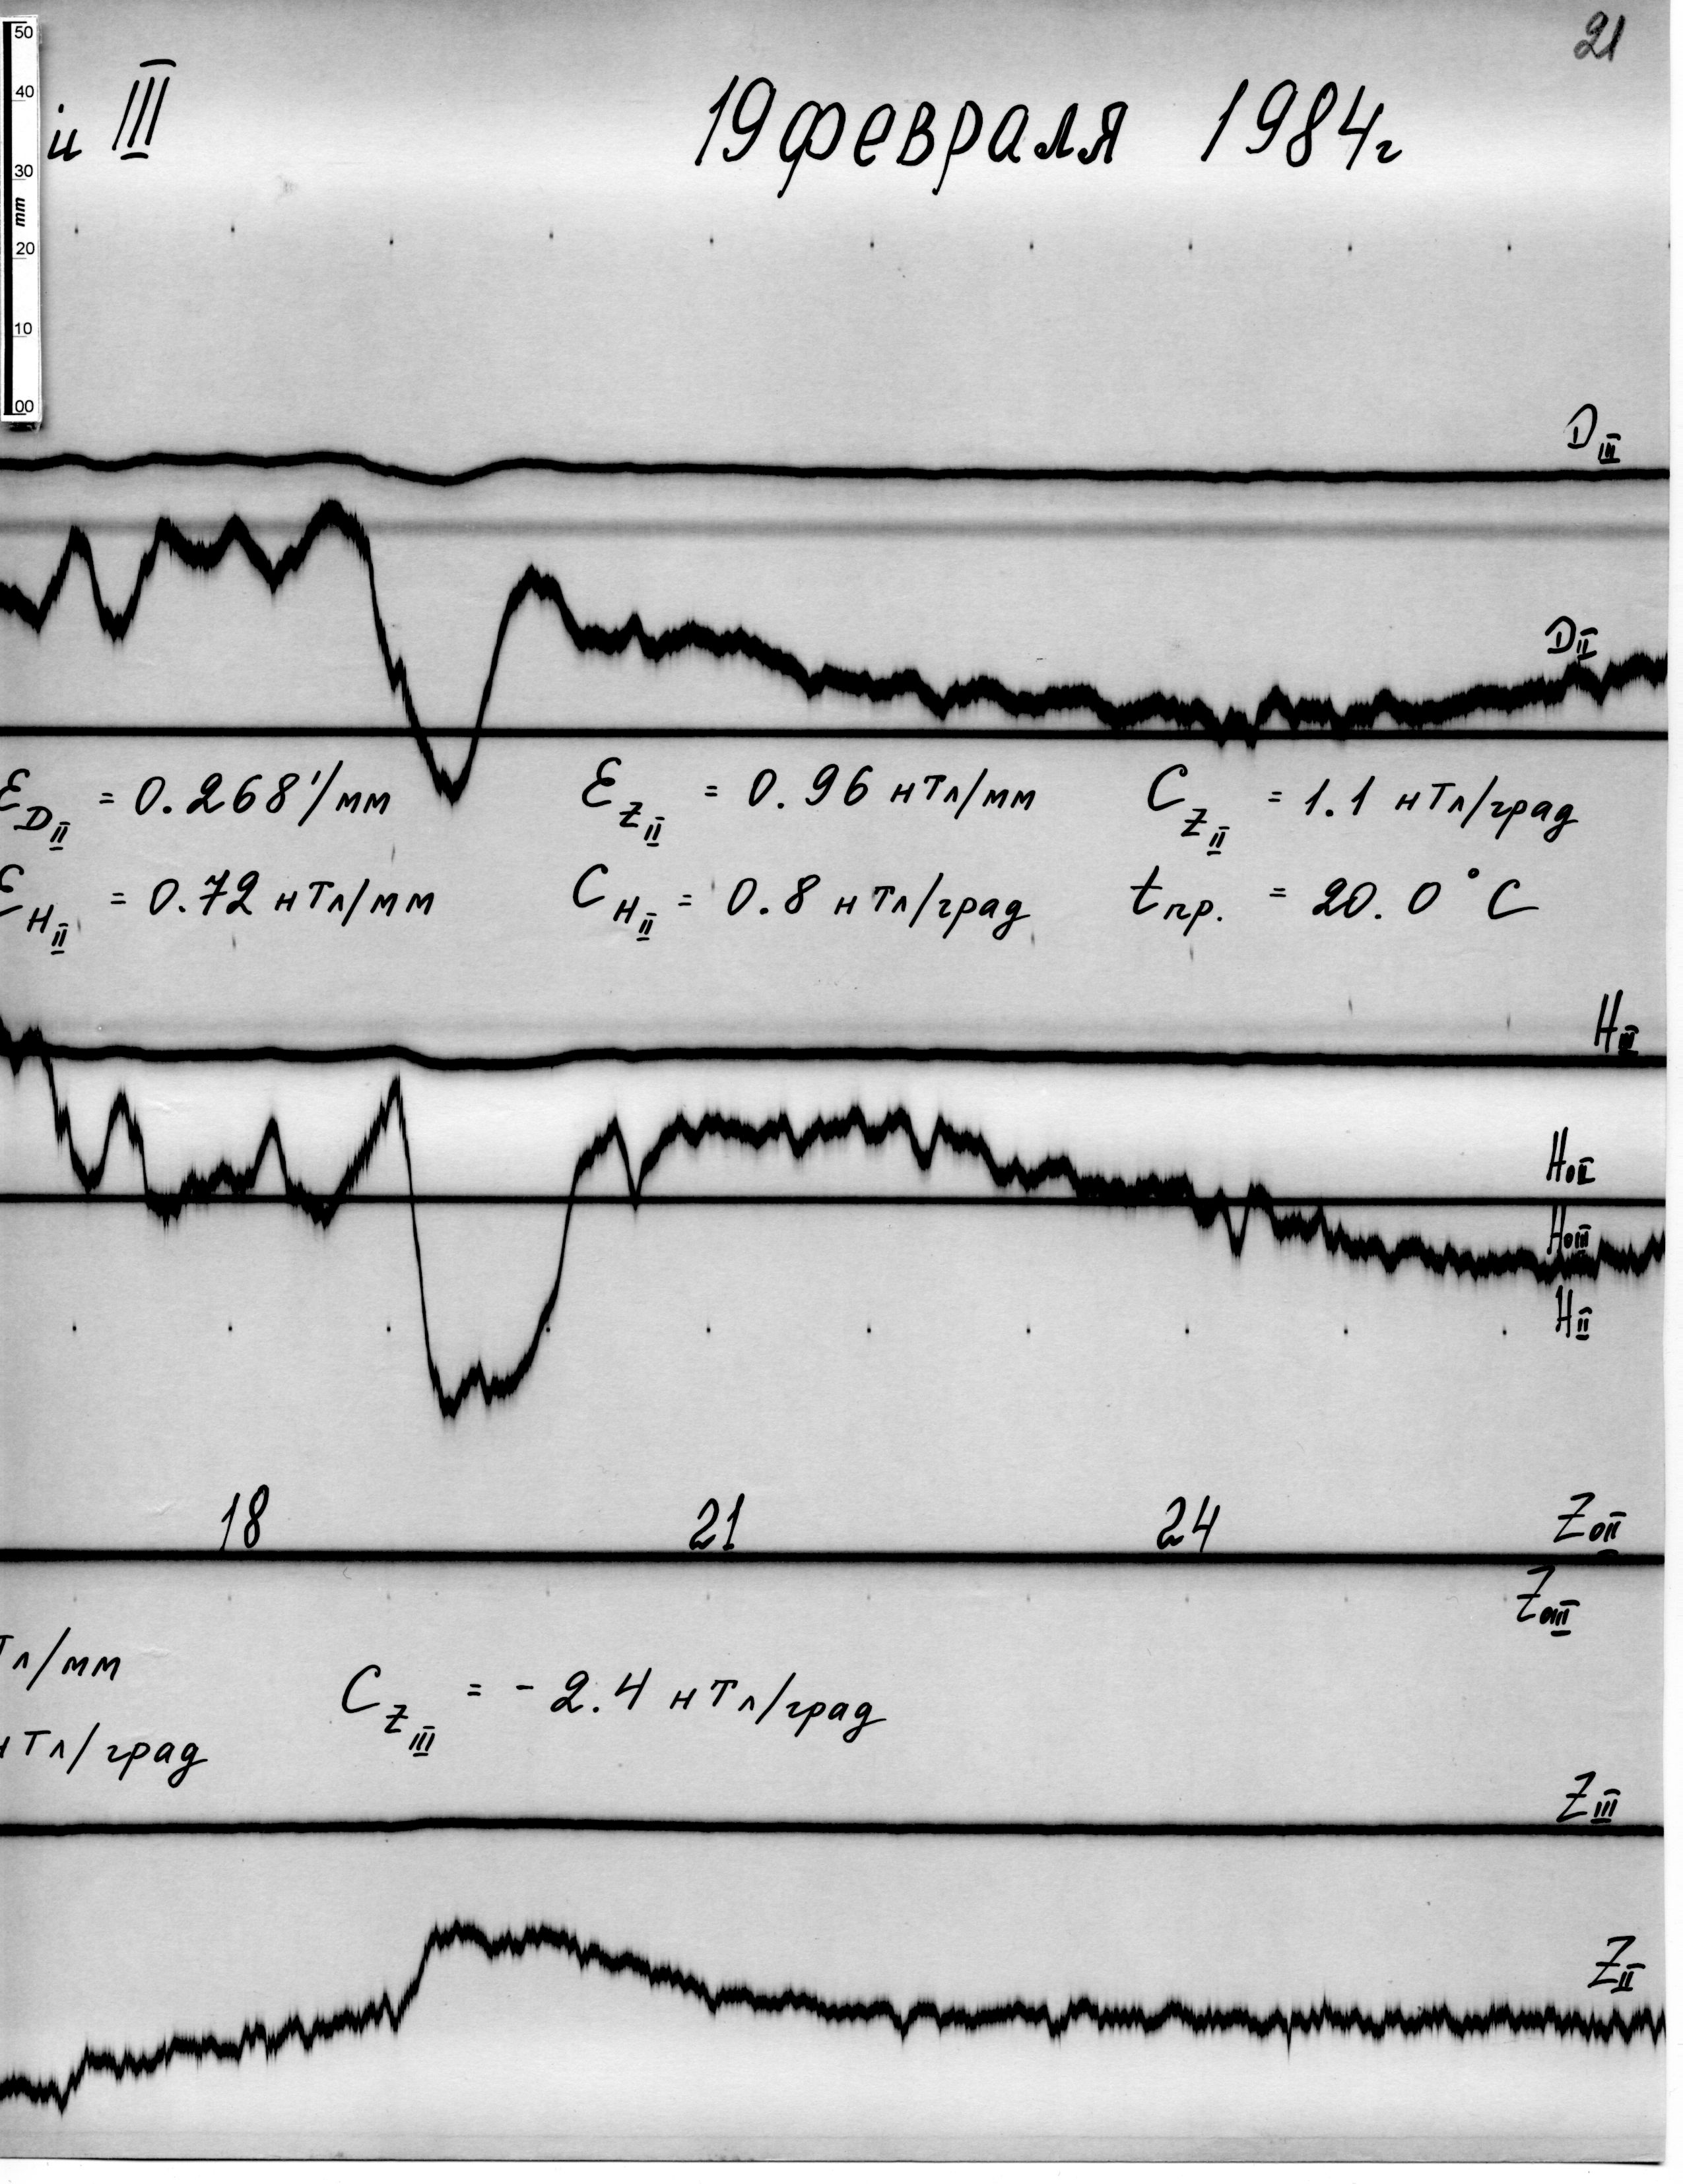 21
50
40
30
mm
20
10
00
и III
19 февраля 1984г
D III
D II
ε D II = 0.268'/мм
ε Z II = 0.96 нТл/мм
C Z II = 1.1 нТл/град
ε H II = 0.72 нТл/мм
C H II = 0.8 нТл/град
t пр. = 20.0°C
H III
H 0II
H 0III
H II
18
21
24
Z 0II
Z 0III
Тл/мм
C Z III = -2.4 нТл/град
нТл/град
Z III
Z II